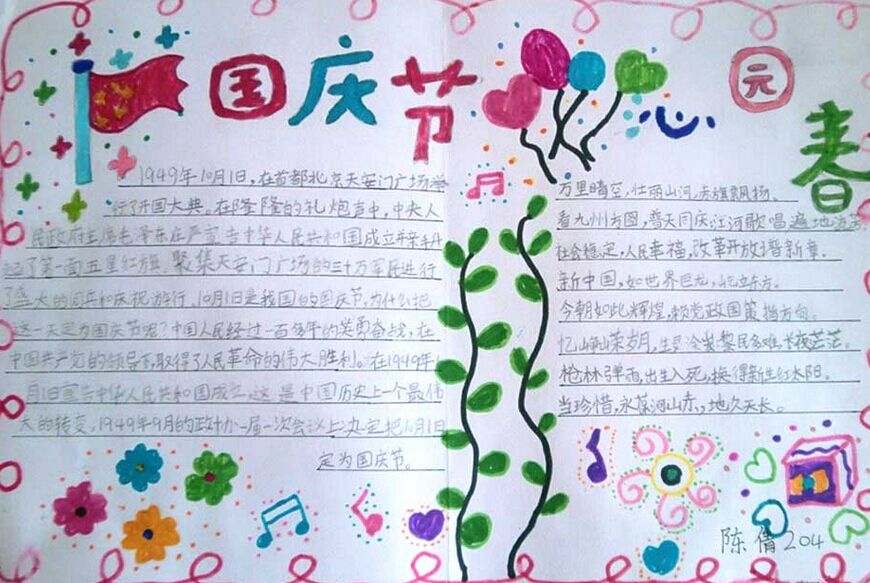 国庆节
1949年10月1日,在首都北京天安门广场举
行了开国大典。在隆隆的礼炮声中,中央人
民政府主席毛泽东庄严宣告中华人民共和国成立并亲手升
起了第一面五星红旗。聚集天安门广场的三十万军民进行
了盛大的阅兵和庆祝游行。10月1日是我国的国庆节,为什么把
这一天定为国庆节呢?中国人民经过一百多年的英勇奋战,在
中国共产党的领导下,取得了人民革命的伟大胜利。在1949年
月1日宣告中华人民共和国成立,这是中国历史上一个最伟
大的转变,1949年9月的政协一届一次会议上决定把10月1日
定为国庆节。
心元春
万里晴空,壮丽山河,赤旗飘扬。
看九州方圆,普天同庆江河歌唱遍地
社会稳定,人民幸福,改革开放谱新章。
新中国,如世界巨龙,屹立东方。
今朝如此辉煌,赖党政国策指方向。
忆峥嵘岁月,生灵涂炭黎民多难,长夜茫茫。
枪林弹雨,出生入死,换得新生红太阳。
当珍惜,永葆河山赤,地久天长。
陈倩204